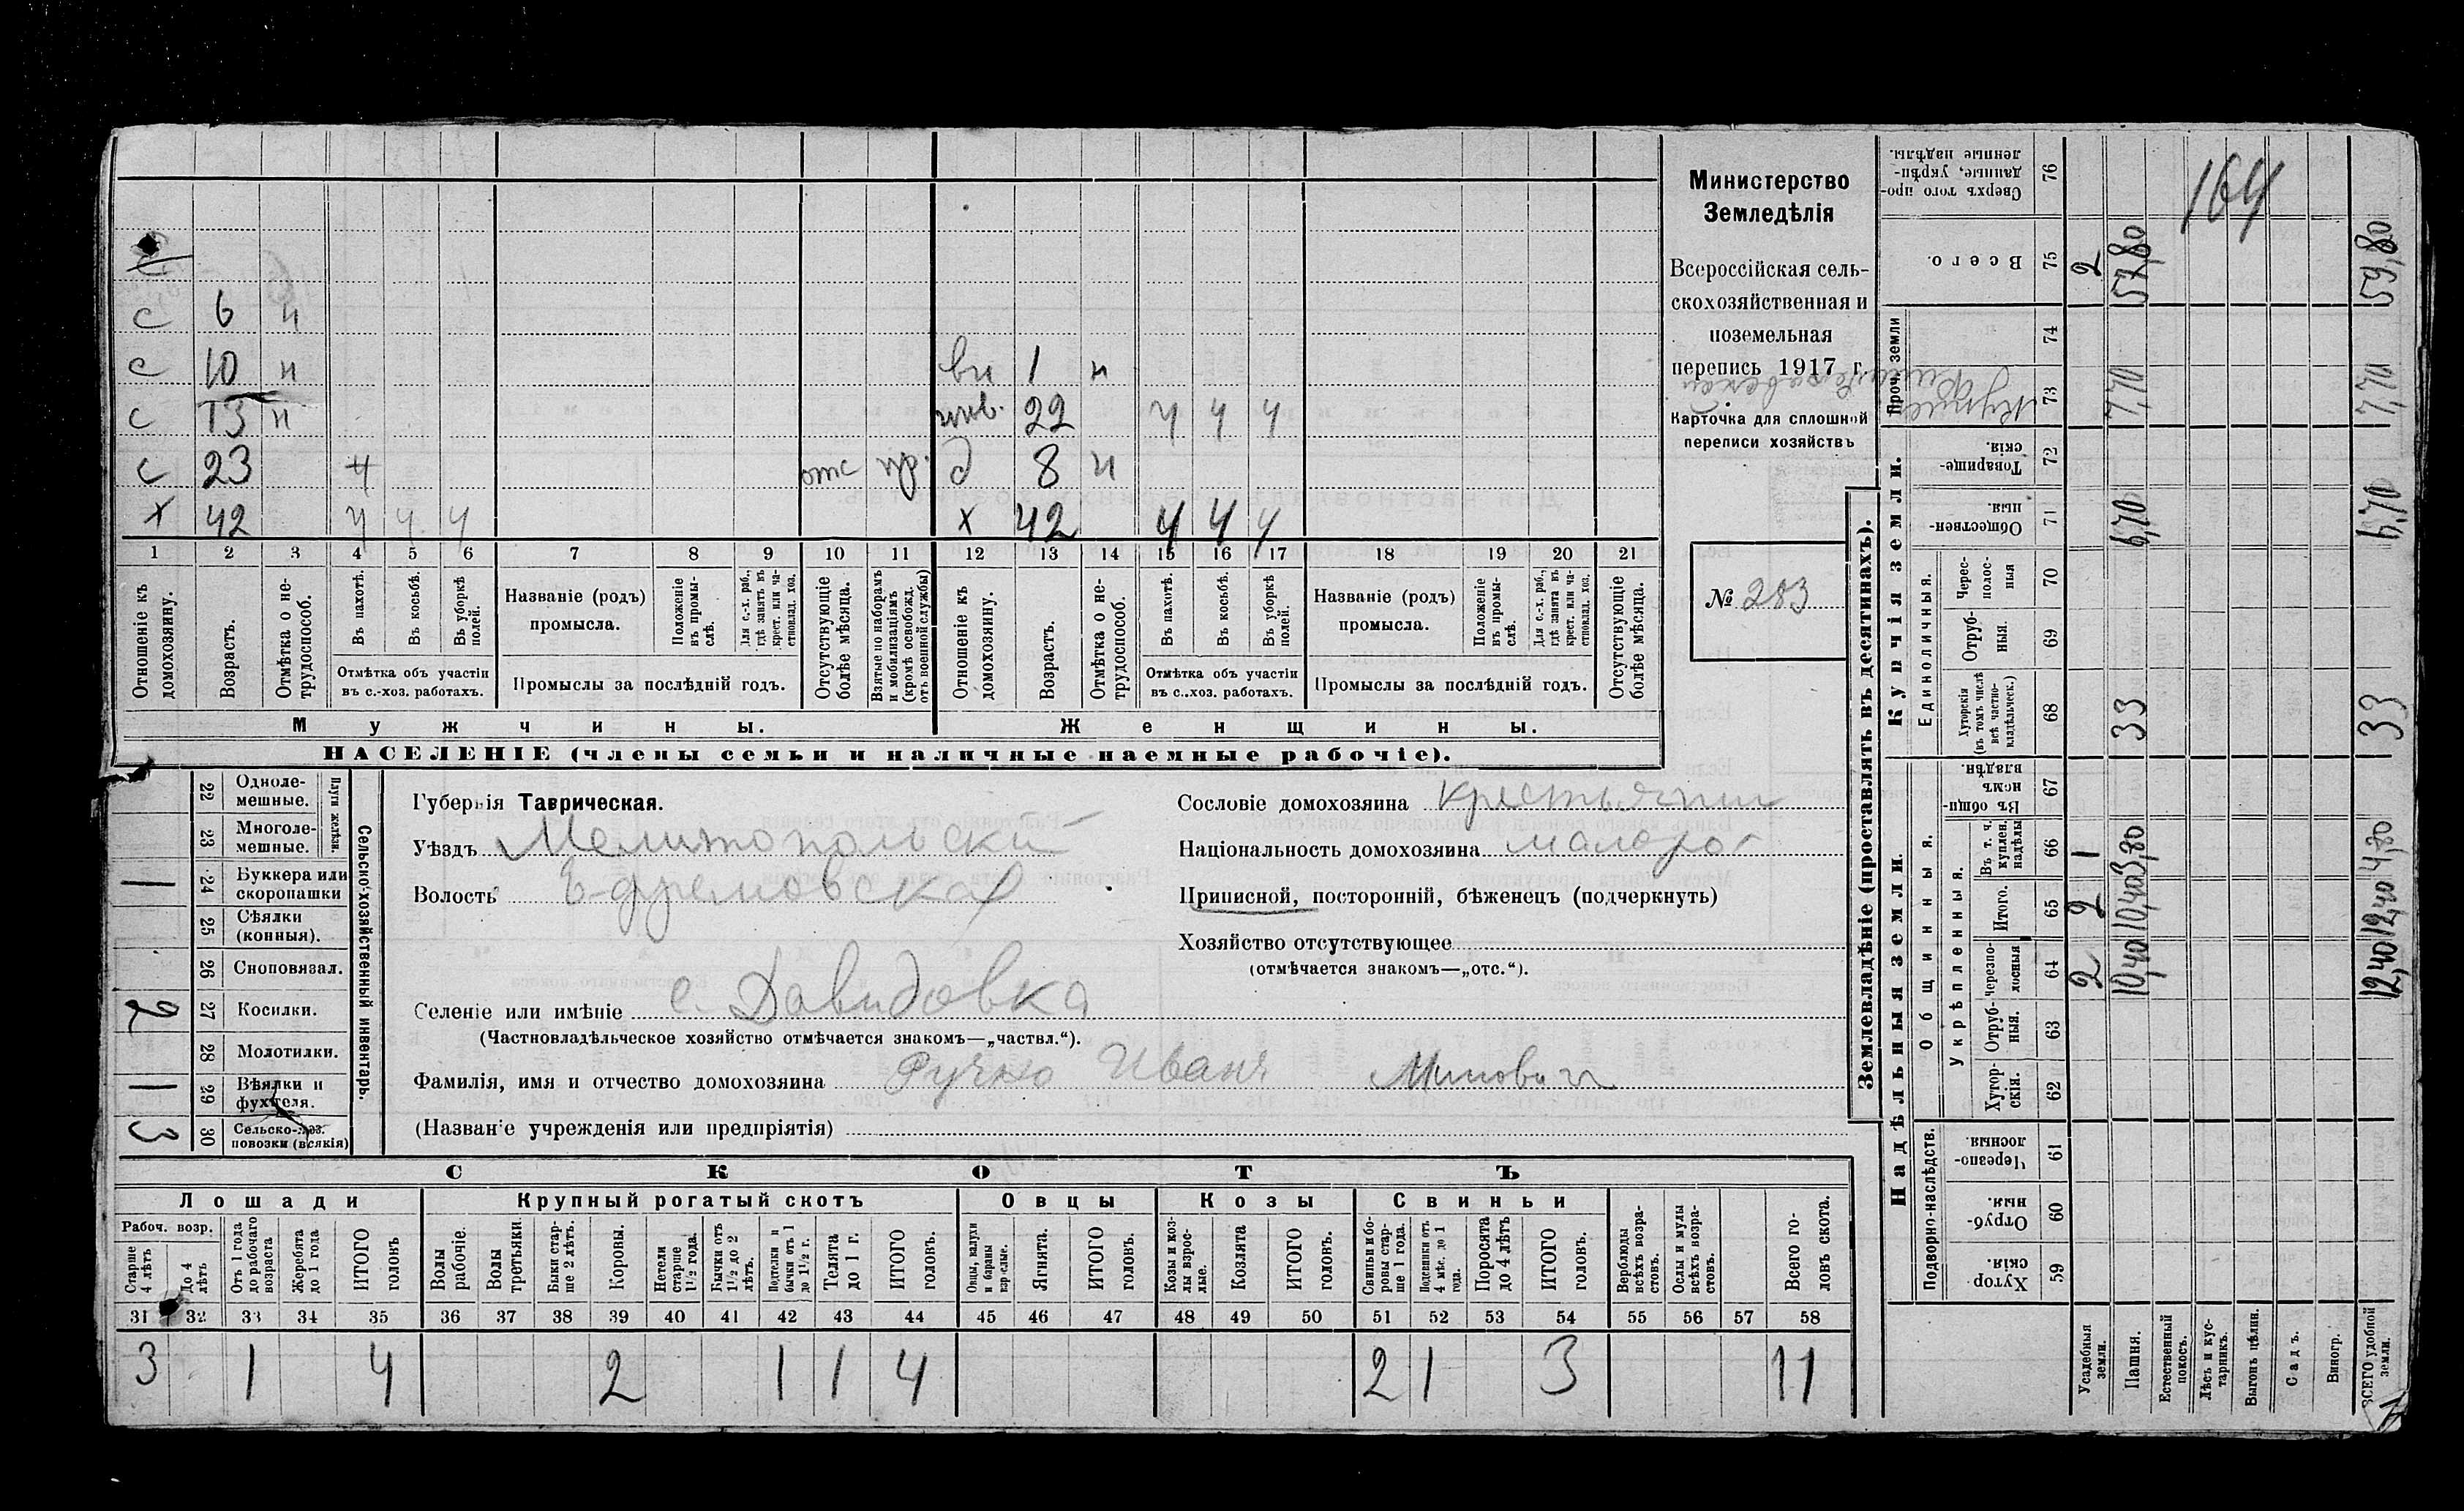 с
с 6 н
с 10 н вн 1 н
с 13 н нев. 22 ч ч ч
с 23 ч отс пр. д 8 н
х 42 ч ч ч х 42 ч ч ч
1 2 3 4 5 6 7 8 9 10 11 12 13 14 15 16 17 18 19 20 21
Отношеніе къ домохозяину.
Возрастъ.
Отмѣтка о не-
трудоспособ.
Въ пахотѣ.
Въ косьбѣ.
Въ уборкѣ полей.
Отмѣтка объ участіи
въ с.-хоз. работахъ.
Названіе (родъ)
промысла.
Положеніе въ промы-
слѣ.
Для с.-х. раб., гдѣ занятъ въ крест. или ча-
стновлад. хоз.
Промыслы за послѣдній годъ.
Отсутствующіе болѣе мѣсяца.
Взятые по наборамъ и мобилизаціямъ (кромѣ освобожд. отъ военной службы)
Отношеніе къ домохозяину.
Возрастъ.
Отмѣтка о не-
трудоспособ.
Въ пахотѣ.
Въ косьбѣ.
Въ уборкѣ полей.
Отмѣтка объ участіи
въ с..хоз. работахъ.
Названіе (родъ)
промысла.
Положеніе въ промы-
слѣ.
Для с.-х. раб., гдѣ занята въ крест. или ча-
стновлад. хоз.
Промыслы за послѣдній годъ.
Отсутствующіе болѣе мѣсяца.
Мужчины.
Женщины.
НАСЕЛЕНІЕ (члены семьи и наличные наемные рабочіе).
Министерство
Земледѣлія
Всероссійская сель-
скохозяйственная и
поземельная
перепись 1917 г.
Карточка для сплошной
переписи хозяйствъ
№ 283
Сельско-хозяйственный инвентарь.
Плуги желѣзн.
22 Одноле-
мешные.
23 Многоле-
мешные.
1 24 Буккера или
скоропашки
25 Сѣялки
(конныя).
26 Сноповязал.
2 27 Косилки.
28 Молотилки.
1 29 Вѣялки и
фухтеля.
3 30 Сельско-хоз.
повозки (всякія)
Губернія Таврическая.
Уѣздъ Мелитопольскій
Волость Ефремовская
Селеніе или имѣніе с. Давидовка
(Частновладѣльческое хозяйство отмѣчается знакомъ—„частвл.“).
Фамилія, имя и отчество домохозяина Ручко Иванъ Миновичъ
(Названіе учрежденія или предпріятія)
Сословіе домохозяина крестьянин
Національность домохозяина малорос
Приписной, посторонній, бѣженецъ (подчеркнуть)
Хозяйство отсутствующее
(отмѣчается знакомъ—„отс.“).
СКОТЪ
Лошади
Крупный рогатый скотъ
Овцы
Козы
Свиньи
Рабоч. возр.
Старше 4 лѣтъ
До 4 лѣтъ
Отъ 1 года до рабочаго возраста
Жеребята до 1 года
ИТОГО головъ
Волы рабочіе.
Волы третьяки.
Быки стар-
ше 2 лѣтъ.
Коровы.
Нетели старше 1½ года.
Бычки отъ 1½ до 2 лѣтъ.
Подтелки и бычки отъ 1 до 1½ г.
Телята до 1 г.
ИТОГО головъ.
Овцы, валухи и бараны взрослые.
Ягнята.
ИТОГО головъ.
Козы и коз-
лы взрос-
лые.
Козлята
ИТОГО головъ.
Свиньи и бо-
ровы стар-
ше 1 года.
Подсвинки отъ 4 мѣс. до 1 года.
Поросята до 4 лѣтъ
ИТОГО головъ.
Верблюды всѣхъ возра-
стовъ.
Ослы и мулы всѣхъ возра-
стовъ.
Всего го-
ловъ скота.
31 32 33 34 35 36 37 38 39 40 41 42 43 44 45 46 47 48 49 50 51 52 53 54 55 56 57 58
3 1 4 2 1 1 4 2 1 3 11
Землевладѣніе (проставлять въ десятинахъ).
Надѣльныя земли.
Купчія земли.
Проч. земли
Подворно-наслѣдств.
Общинныя.
Укрѣпленныя.
Единоличныя.
Хутор-
скія. 59
Отруб-
ныя. 60
Черезпо-
лосныя. 61
Хутор-
скія. 62
Отруб-
ныя. 63
Черезпо-
лосныя 64
Итого. 65
Въ т. ч. куплен. надѣлы 66
Въ общин-
номъ владѣн. 67
Хуторскія (въ томъ числѣ всѣ частно-
владѣльческ.) 68
Отруб-
ныя. 69
Черес-
полос-
ныя 70
Обществен-
ныя. 71
Товарище-
скія. 72
73
74
Всего. 75
Сверхъ того про-
данные, укрѣп-
ленные надѣлы. 76
Усадебныя земли. 2 2 1 2
Пашня. 10,40 10,40 3,80 33 6,70 7,70 57,80
Естественный покосъ.
Лѣсъ и кус-
тарникъ.
Выгонъ цѣлин.
Садъ.
Виногр.
ВСЕГО удобной земли. 12,40 12,40 4,80 33 6,70 7,70 59,80
164